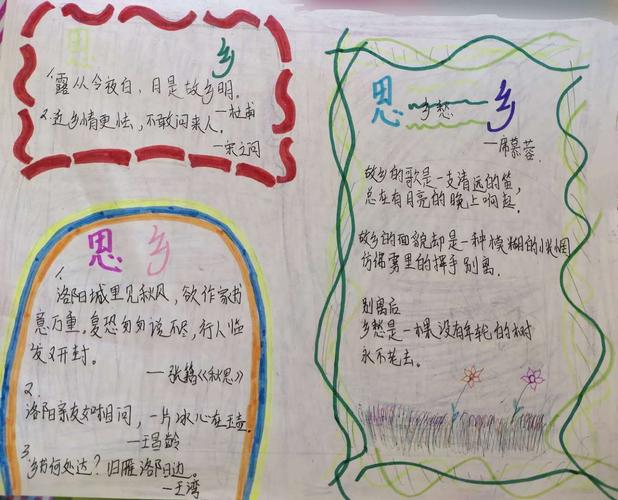 思 乡
1.露从今夜白，月是故乡明。
—杜甫
2.近乡情更怯，不敢问来人。
—宋之问
思 乡
1.
洛阳城里见秋风，欲作家书
意万重，复恐匆匆说不尽，行人临
发又开封。
—张籍《秋思》
2.
洛阳亲友如相问，一片冰心在玉壶。
—王昌龄
3.
乡书何处达？归雁洛阳边。
—王湾
思 乡愁 乡
—席慕蓉
故乡的歌是一支清远的笛，
总在有月亮的晚上响起。
故乡的面貌却是一种模糊的怅惘
仿佛雾里的挥手别离。
别离后
乡愁是一棵没有年轮的树
永不老去。